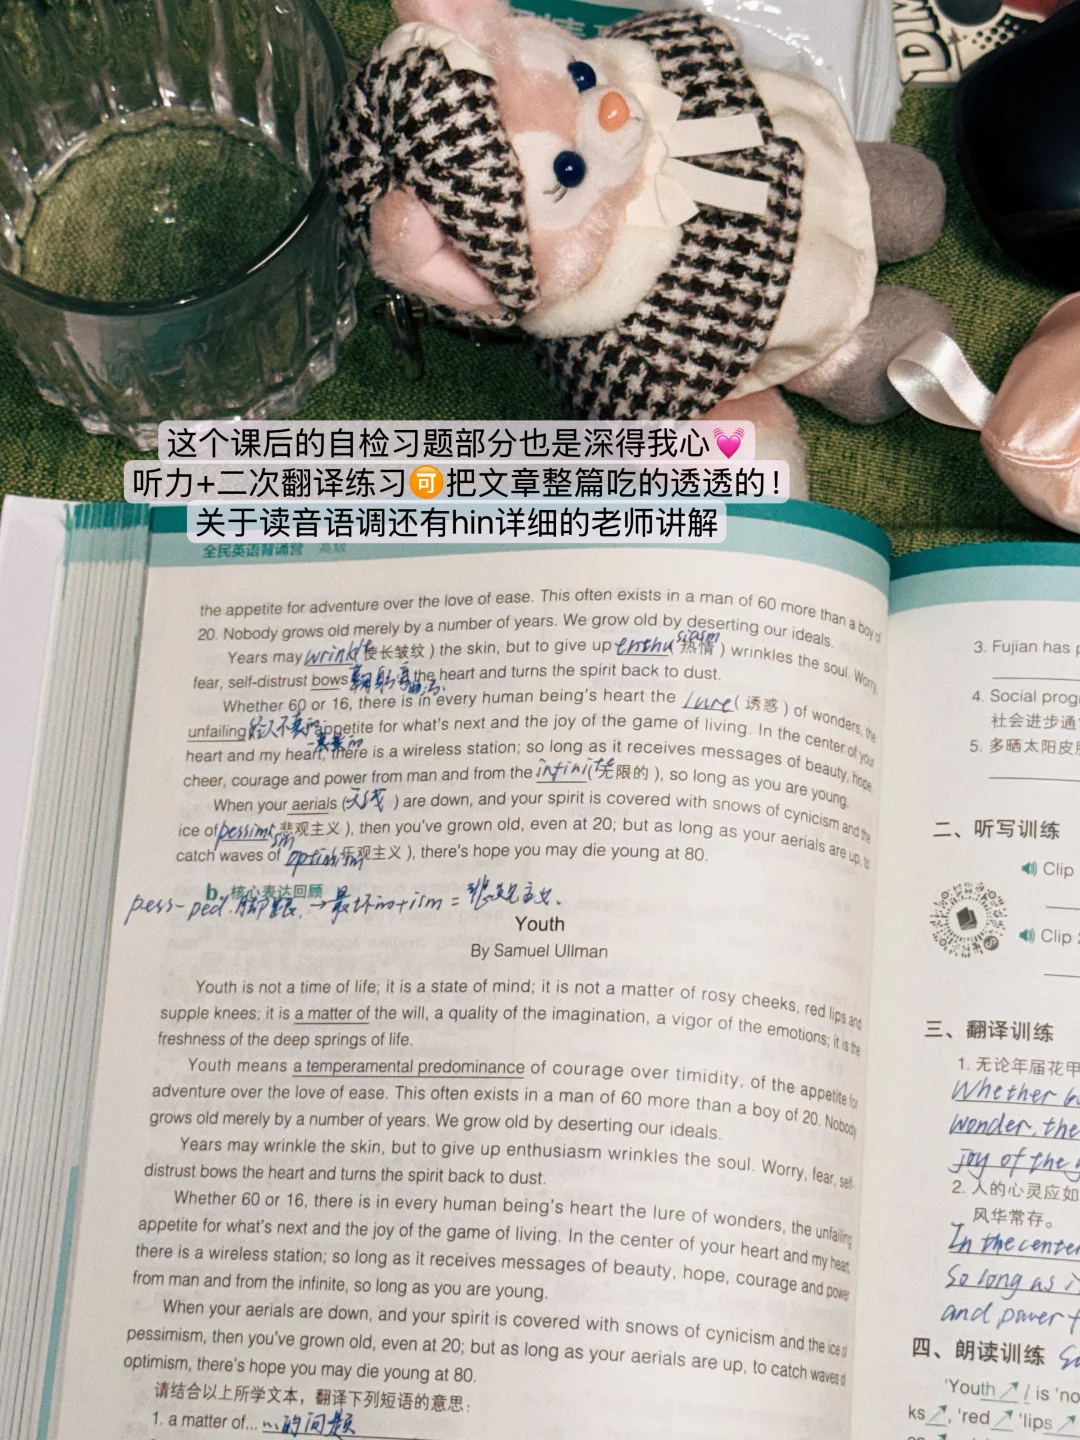 这个课后的自检习题部分也是深得我心💓
听力+二次翻译练习🉑把文章整篇吃的透透的！
关于读音语调还有hin详细的老师讲解
全民英语背诵营 高级
the appetite for adventure over the love of ease. This often exists in a man of 60 more than a boy of
20. Nobody grows old merely by a number of years. We grow old by deserting our ideals.
Years may wrinkle(使长皱纹) the skin, but to give up enthusiasm(热情) wrinkles the soul. Worry,
fear, self-distrust bows the heart and turns the spirit back to dust.
Whether 60 or 16, there is in every human being's heart the lure(诱惑) of wonders, the
unfailing appetite for what's next and the joy of the game of living. In the center of your
heart and my heart, there is a wireless station; so long as it receives messages of beauty, hope,
cheer, courage and power from man and from the infinit(无限的), so long as you are young.
When your aerials (天线) are down, and your spirit is covered with snows of cynicism and the
ice of pessimism(悲观主义), then you've grown old, even at 20; but as long as your aerials are up, to
catch waves of optimism(乐观主义), there's hope you may die young at 80.
b. 核心表达回顾
pess-ped.脚跟. → 最坏的+ism = 悲观主义.
Youth
By Samuel Ullman
Youth is not a time of life; it is a state of mind; it is not a matter of rosy cheeks, red lips and
supple knees; it is a matter of the will, a quality of the imagination, a vigor of the emotions; it is the
freshness of the deep springs of life.
Youth means a temperamental predominance of courage over timidity, of the appetite for
adventure over the love of ease. This often exists in a man of 60 more than a boy of 20. Nobody
grows old merely by a number of years. We grow old by deserting our ideals.
Years may wrinkle the skin, but to give up enthusiasm wrinkles the soul. Worry, fear, self-
distrust bows the heart and turns the spirit back to dust.
Whether 60 or 16, there is in every human being's heart the lure of wonders, the unfailing
appetite for what's next and the joy of the game of living. In the center of your heart and my heart,
there is a wireless station; so long as it receives messages of beauty, hope, courage and power
from man and from the infinite, so long as you are young.
When your aerials are down, and your spirit is covered with snows of cynicism and the ice of
pessimism, then you've grown old, even at 20; but as long as your aerials are up, to catch waves of
optimism, there's hope you may die young at 80.
请结合以上所学文本，翻译下列短语的意思：
1. a matter of... ...的问题
3. Fujian has
4. Social prog
社会进步通
5. 多晒太阳皮
二、听写训练
Clip
Clip 2
三、翻译训练
1. 无论年届花甲
Whether 6
wonder, the
joy of the
2. 人的心灵应如
风华常存。
In the center
So long as i
and power f
四、朗读训练
'Youth ↗ / is 'no
ks ↗, 'red ↗ 'lips ↗